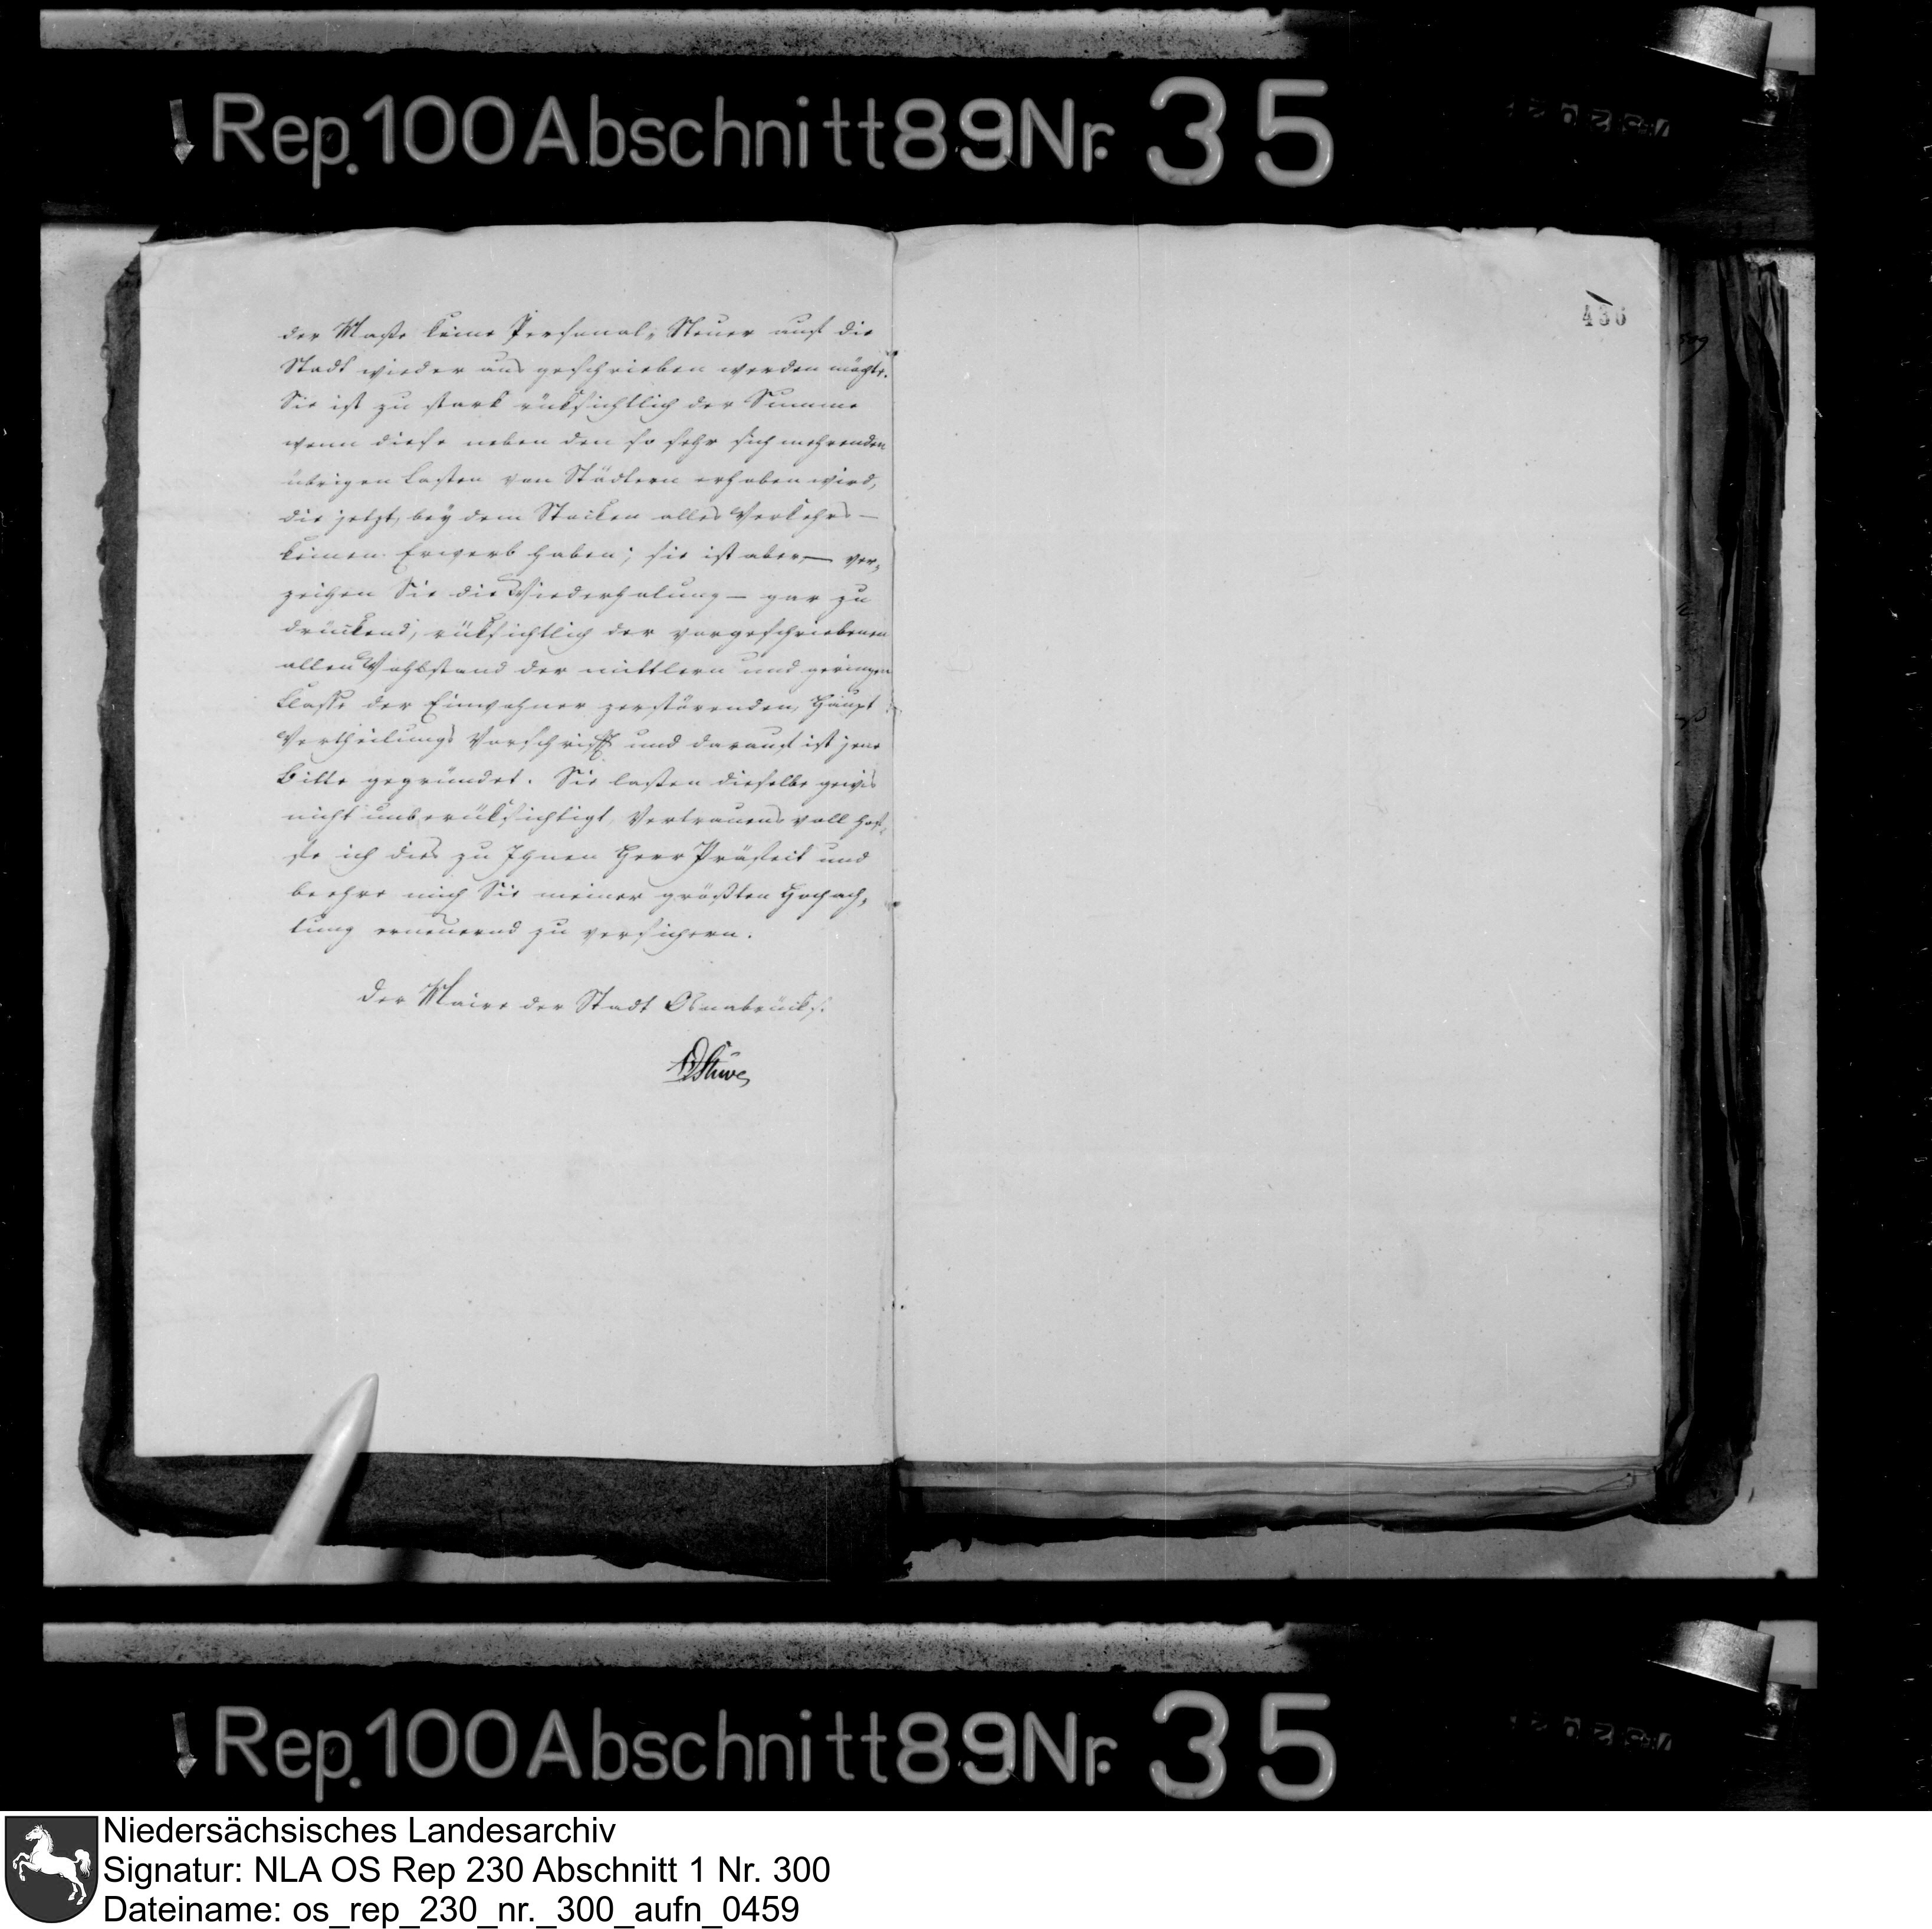 Rep. 100 Abschnitt 89 Nr. 35
436
der Maße keine Personal-Steuer auf die
Stadt wieder ausgeschrieben werden mögte.
Sie ist zu stark rüksichtlich der Summe
wenn diese neben den so sehr sich mehrenden
übrigen Lasten von Städtern erhoben wird,
die jetzt, bey dem Stocken alles Verkehrs —
keinen Erwerb haben; sie ist aber, — ver-
zeihen Sie die Wiederholung — gar zu
drückend, rüksichtlich der vorgeschriebenen
allen Wohlstand der mittlern und geringen
Classe der Einwohner zerstörenden, Haupt
Vertheilungs Vorschrift und darauf ist jene
Bitte gegründet. Sie lassen dieselbe gewis
nicht unberüksichtigt, Vertrauens voll hof-
fe ich dies zu Ihnen Herr Präfect und
beehre mich Sie meiner größten Hochach-
tung erneuernd zu versichern.
Der Maire der Stadt Osnabrück.
Stüve
Rep. 100 Abschnitt 89 Nr. 35
Niedersächsisches Landesarchiv
Signatur: NLA OS Rep 230 Abschnitt 1 Nr. 300
Dateiname: os_rep_230_nr._300_aufn_0459